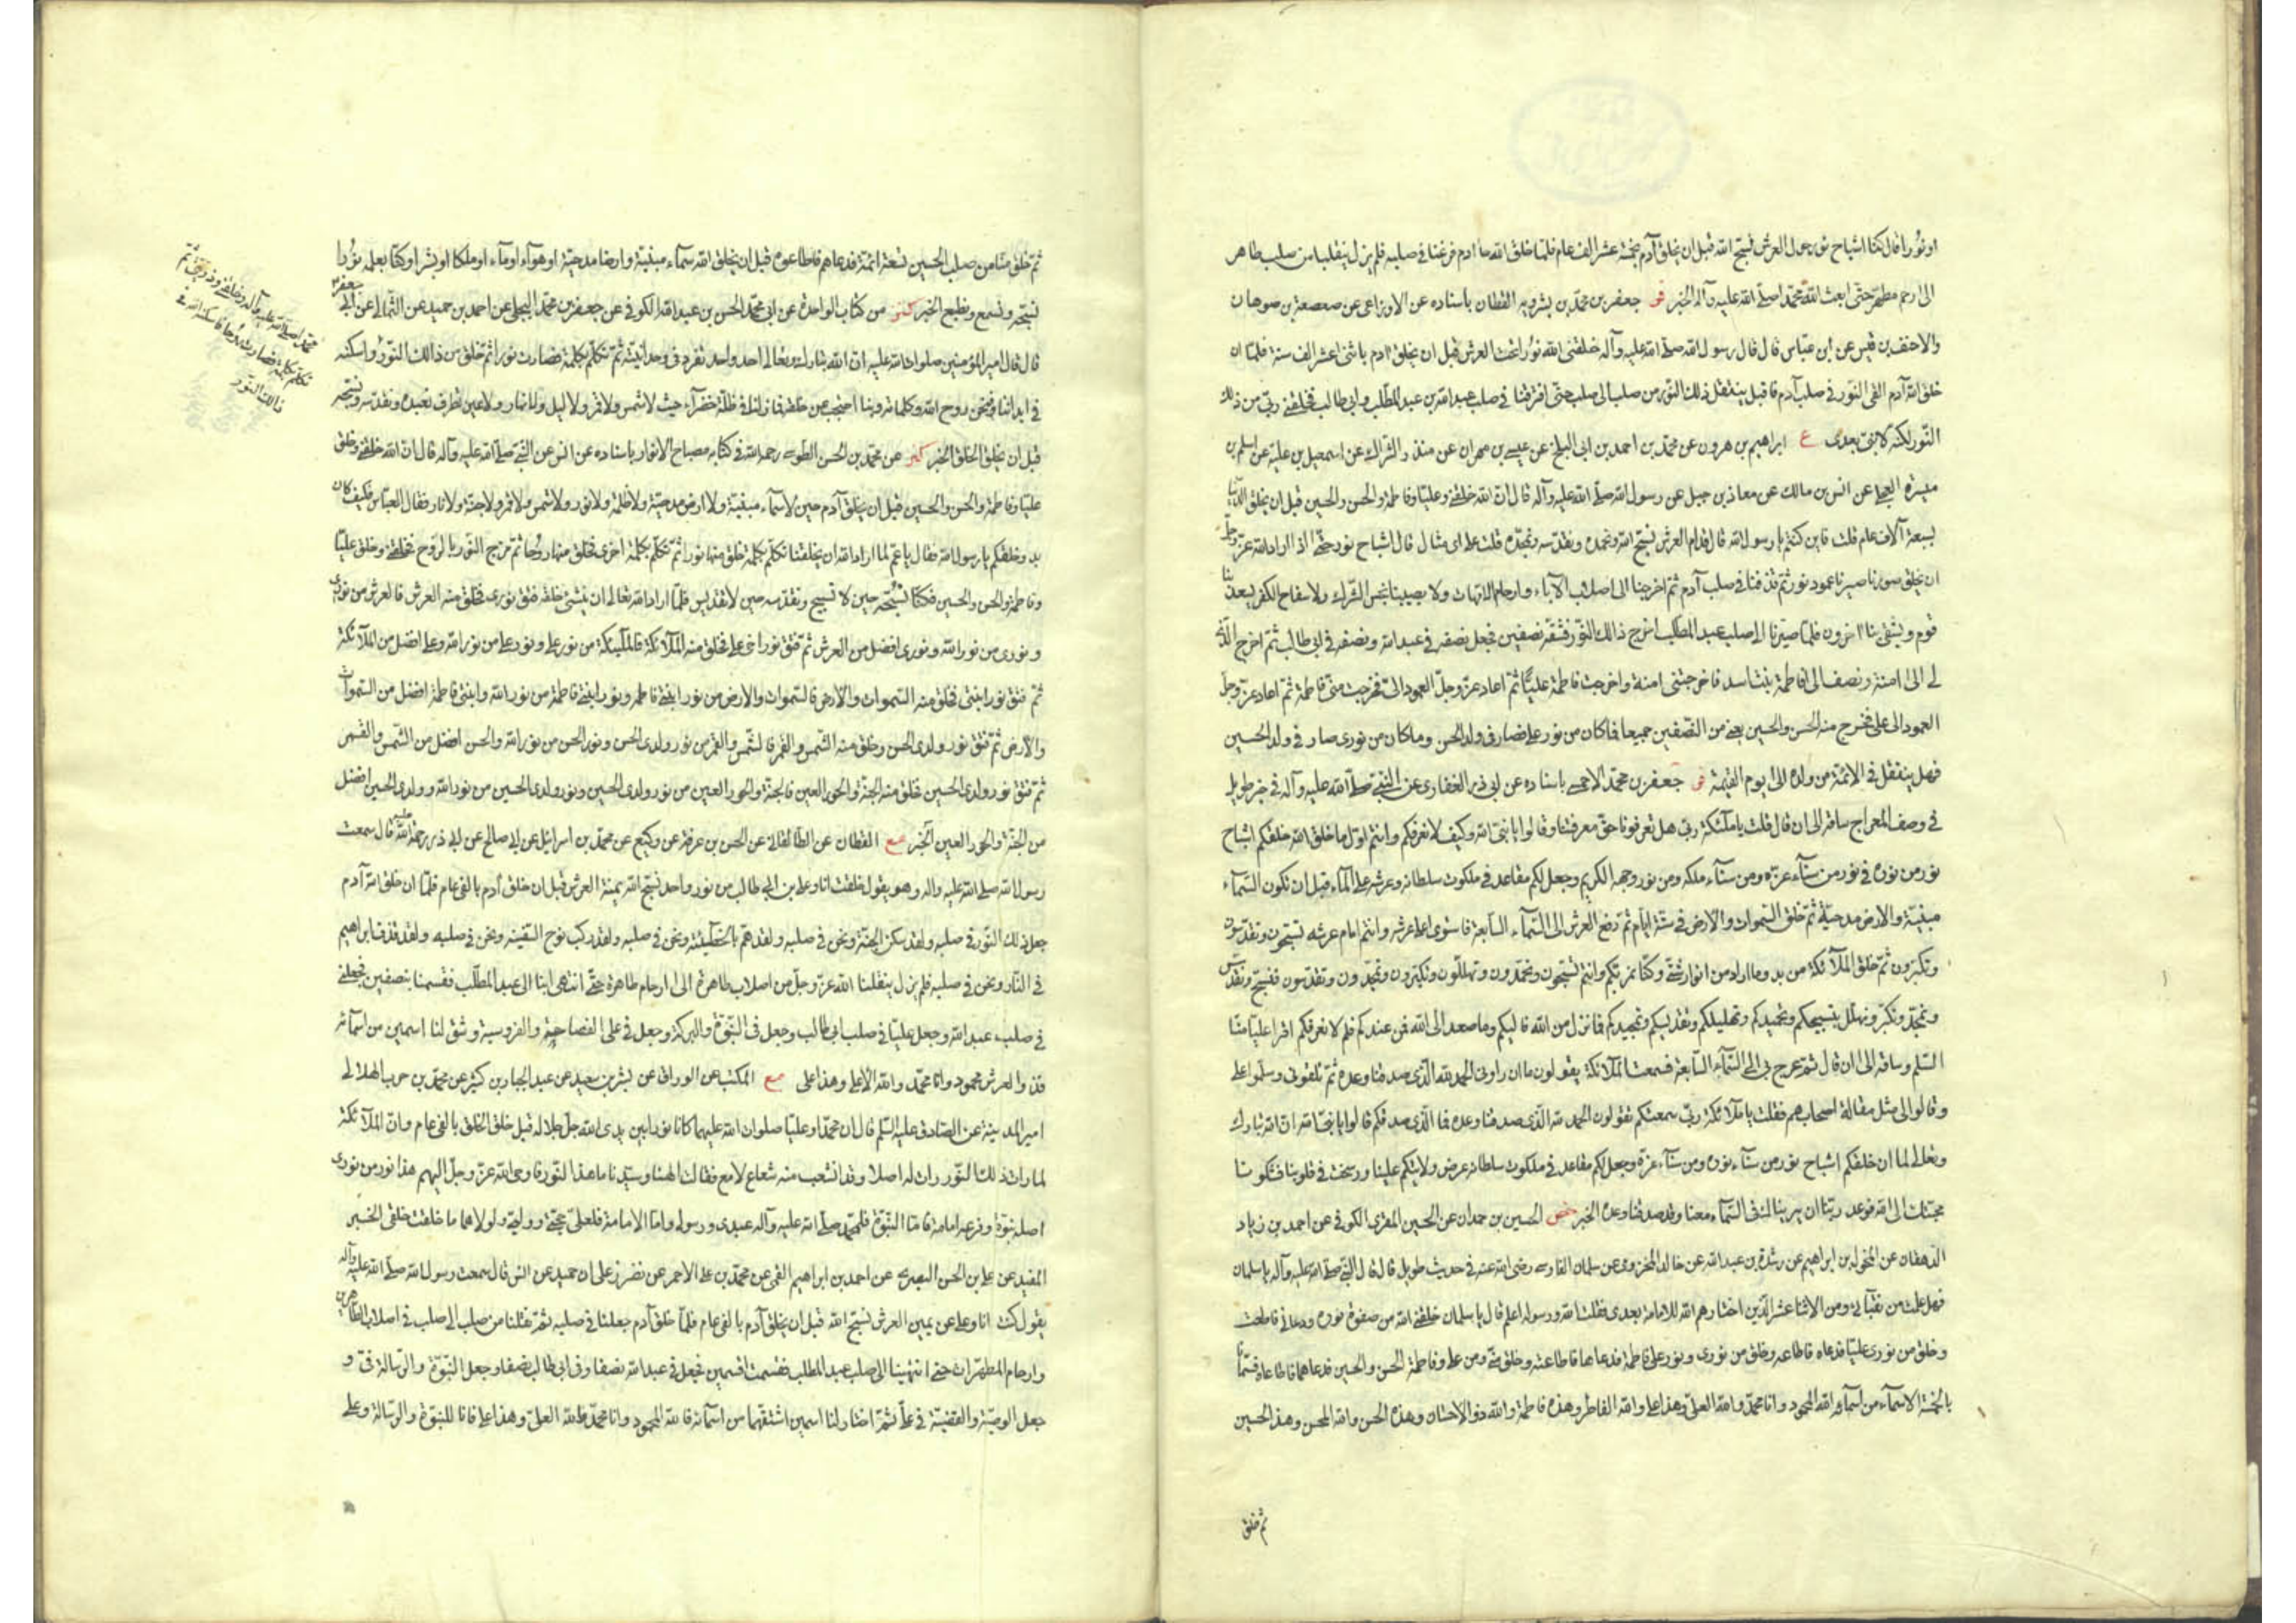 او نورا قال كنا اشباح نور حول العرش نسبح الله قبل ان يخلق آدم بخمسة عشر الف عام فلما خلق الله آدم فرغنا في صلبه فلم يزل ينقلنا من صلب طاهر
الى رحم مطهر حتى ابعث الله محمدا صلى الله عليه وآله الخبر فر جعفر بن محمد بن بشرويه القطان باسناده عن الاوزاعي عن صعصعة بن صوحان
والاحنف بن قيس عن ابن عباس قال قال رسول الله صلى الله عليه وآله خلقني الله نورا تحت العرش قبل ان يخلق آدم باثنى عشر الف سنة فلما ان
خلق الله آدم القى النور في صلب آدم فاقبل ينتقل ذلك النور من صلب الى صلب حتى افترقنا في صلب عبد الله بن عبد المطلب وابي طالب فخلقني ربي من ذلك
النور لكنه لا نبي بعدي ع ابراهيم بن هرون عن محمد بن احمد بن ابي البلخ عن عيسى بن مهران عن منذر الشراك عن اسمعيل بن علية عن اسلم بن
ميسرة العجلي عن انس بن مالك عن معاذ بن جبل عن رسول الله صلى الله عليه وآله قال ان الله خلقني وعليا وفاطمة والحسن والحسين قبل ان يخلق الدنيا
بسبعة آلاف عام قلت فاين كنتم يا رسول الله قال قدام العرش نسبح الله ونحمده ونقدسه ونمجده قلت على اي مثال قال اشباح نور حتى اذا اراد الله عز وجل
ان يخلق صورنا صيرنا عمود نور ثم قذفنا في صلب آدم ثم اخرجنا الى اصلاب الآباء وارحام الامهات ولا يصيبنا نجس الشرك ولا سفاح الكفر يسعد بنا
قوم ويشقى بنا آخرون فلما صيرنا الى صلب عبد المطلب اخرج ذلك النور فشقه نصفين فجعل نصفه في عبد الله ونصفه في ابي طالب ثم اخرج الذي
لي الى آمنة ونصف الى فاطمة بنت اسد فاخرجتني آمنة واخرجت فاطمة عليا ثم اعاد عز وجل العمود الي فخرجت مني فاطمة ثم اعاد عز وجل
العمود الى علي فخرج منه الحسن والحسين يعني من النصفين جميعا فما كان من نور علي فصار في ولد الحسن وما كان من نوري صار في ولد الحسين
فهل ينتقل في الائمة من ولده الى يوم القيمة فر جعفر بن محمد الاحمسي باسناده عن ابي ذر الغفاري عن النبي صلى الله عليه وآله في خبر طويل
في وصف المعراج ساقه الى ان قال قلت يا ملئكة ربي هل تعرفونا حق معرفتنا وقالوا يا نبي الله وكيف لا نعرفكم وانتم اول ما خلق الله خلقكم اشباح
نور من نوره في نور من سناء عزه ومن سناء ملكه ومن نور وجهه الكريم وجعل لكم مقاعد في ملكوت سلطانه وعرشه على الماء قبل ان تكون السماء
مبنية والارض مدحية ثم خلق السموات والارض في ستة ايام ثم رفع العرش الى السماء السابعة فاستوى على عرشه وانتم امام عرشه تسبحون وتقدسون
وتكبرون ثم خلق الملائكة من بدو ما اراد من انوار شتى وكنا نمر بكم وانتم تسبحون وتحمدون وتهللون وتكبرون وتمجدون وتقدسون فنسبح ونقدس
ونمجد ونكبر ونهلل بتسبيحكم وتحميدكم وتهليلكم وتقديسكم وتمجيدكم فما نزل من الله فاليكم وما صعد الى الله فمن عندكم فلم لا نعرفكم اقرأ عليا منا
السلم وساقه الى ان قال ثم عرج بي الى السماء السابعة فسمعت الملائكة يقولون ما ان راوني الحمد لله الذي صدقنا وعده ثم تلقوني وسلموا علي
وقالوا لي مثل مقالة اصحابهم فقلت يا ملائكة ربي سمعتكم تقولون الحمد لله الذي صدقنا وعده فما الذي صدقكم قالوا يا نبي الله ان الله تبارك
وتعالى لما ان خلقكم اشباح نور من سناء نوره ومن سناء عزه وجعل لكم مقاعد في ملكوت سلطانه عرض ولايتكم علينا ورسخت في قلوبنا فشكونا
محبتك الى الله فوعد ربنا ان يريناك في السماء معنا وقد صدقنا وعده الخبر خص الحسين بن حمدان عن الحسين المقرى الكوفي عن احمد بن زياد
الدهقان عن المخول بن ابراهيم عن رشدة بن عبد الله عن خالد المخزومي عن سلمان الفارسي رضي الله عنه في حديث طويل قال قال النبي صلى الله عليه وآله يا سلمان
فهل علمت من نقبائي ومن الاثنا عشر الذين اختارهم الله للامامة بعدي فقلت الله ورسوله اعلم قال يا سلمان خلقني الله من صفوة نوره ودعاني فاطعت
وخلق من نوري عليا فدعاه فاطاعه وخلق من نوري ونور علي فاطمة فدعاها فاطاعته وخلق مني ومن علي وفاطمة الحسن والحسين فدعاهما فاطاعاه فسمانا
بالخمسة الاسماء من اسمائه الله المحمود وانا محمد والله العلي وهذا علي والله الفاطر وهذه فاطمة والله ذو الاحسان وهذا الحسن والله المحسن وهذا الحسين
ثم خلق
ثم خلق منا من صلب الحسين تسعة ائمة فدعاهم فاطاعوه قبل ان يخلق الله سماء مبنية وارضا مدحية او هواء او ماء او ملكا او بشرا وكنا بعلمه نورا
نسبحه ونسمع ونطيع الخبر كنز من كتاب الواحدة عن ابي محمد الحسن بن عبد الله الكوفي عن جعفر بن محمد البجلي عن احمد بن حميد عن الثمالي عن ابي جعفر ع
قال قال امير المؤمنين صلوات الله عليه ان الله تبارك وتعالى احد واحد تفرد في وحدانيته ثم تكلم بكلمة فصارت نورا ثم خلق من ذلك النور واسكنه
محمدا صلى الله عليه وآله وخلقني وذريتي ثم
تكلم بكلمة فصارت روحا فاسكنه الله في
ذلك النور
في ابداننا فنحن روح الله وكلماته وبنا احتجب عن خلقه فما زلنا في ظلة خضراء حيث لا شمس ولا قمر ولا ليل ولا نهار ولا عين تطرف نعبده ونقدسه ونسبحه
قبل ان يخلق الخلق الخبر كنز عن محمد بن الحسن الطوسي رحمه الله في كتابه مصباح الانوار باسناده عن انس عن النبي صلى الله عليه وآله قال ان الله خلقني وخلق
عليا وفاطمة والحسن والحسين قبل ان يخلق آدم حين لا سماء مبنية ولا ارض مدحية ولا ظلمة ولا نور ولا شمس ولا قمر ولا جنة ولا نار فقال العباس فكيف كان
بدو خلقكم يا رسول الله فقال يا عم لما اراد الله ان يخلقنا تكلم بكلمة خلق منها نورا ثم تكلم بكلمة اخرى فخلق منها روحا ثم مزج النور بالروح فخلقني وخلق عليا
وفاطمة والحسن والحسين فكنا نسبحه حين لا تسبيح ونقدسه حين لا تقديس فلما اراد الله تعالى ان ينشئ خلقه فتق نوري فخلق منه العرش فالعرش من نوري
ونوري من نور الله ونوري افضل من العرش ثم فتق نور اخي علي فخلق منه الملائكة فالملئكة من نور علي ونور علي من نور الله وعلي افضل من الملائكة
ثم فتق نور ابنتي فخلق منه السموات والارض فالسموات والارض من نور ابنتي فاطمة ونور ابنتي فاطمة من نور الله وابنتي فاطمة افضل من السموات
والارض ثم فتق نور ولدي الحسن وخلق منه الشمس والقمر فالشمس والقمر من نور ولدي الحسن ونور الحسن من نور الله والحسن افضل من الشمس والقمر
ثم فتق نور ولدي الحسين فخلق منه الجنة والحور العين فالجنة والحور العين من نور ولدي الحسين ونور ولدي الحسين من نور الله وولدي الحسين افضل
من الجنة والحور العين الخبر مع القطان عن الطالقاني عن الحسن بن عرفة عن وكيع عن محمد بن اسرائيل عن ابي صالح عن ابي ذر رحمة الله عليه قال سمعت
رسول الله صلى الله عليه وآله وهو يقول خلقت انا وعلي بن ابي طالب من نور واحد نسبح الله يمنة العرش قبل ان خلق آدم بالفي عام فلما ان خلق الله آدم
جعل ذلك النور في صلبه ولقد سكن الجنة ونحن في صلبه ولقد هم بالخطيئة ونحن في صلبه ولقد ركب نوح السفينة ونحن في صلبه ولقد قذف ابراهيم
في النار ونحن في صلبه فلم يزل ينقلنا الله عز وجل من اصلاب طاهرة الى ارحام طاهرة حتى انتهى بنا الى عبد المطلب فقسمنا بنصفين فجعلني
في صلب عبد الله وجعل عليا في صلب ابي طالب وجعل في النبوة والبركة وجعل في علي الفصاحة والفروسية وشق لنا اسمين من اسمائه
فذو العرش محمود وانا محمد والله الاعلى وهذا علي مع المكتب عن الوراق عن بشر بن سعيد عن عبد الجبار بن كثير عن محمد بن حرب الهلالي
امير المدينة عن الصادق عليه السلم قال ان محمدا وعليا صلوات الله عليهما كانا نورا بين يدي الله جل جلاله قبل خلق الخلق بالفي عام وان الملائكة
لما رات ذلك النور رات له اصلا وقد انشعب منه شعاع لامع فقالت الهنا وسيدنا ما هذا النور فاوحى الله عز وجل اليهم هذا نور من نوري
اصله نبوة وفرعه امامة فاما النبوة فلمحمد صلى الله عليه وآله عبدي ورسولي واما الامامة فلعلي حجتي ووليي ولولاهما ما خلقت خلقي الخبر
المفيد عن علي بن الحسن البصري عن احمد بن ابراهيم القمي عن محمد بن علي الاحمر عن نصر بن علي عن حميد عن انس قال سمعت رسول الله صلى الله عليه وآله
يقول كنت انا وعلي عن يمين العرش نسبح الله قبل ان يخلق آدم بالفي عام فلما خلق آدم جعلنا في صلبه ثم نقلنا من صلب الى صلب في اصلاب الطاهرين
وارحام المطهرات حتى انتهينا الى صلب عبد المطلب فقسمت قسمين فجعل في عبد الله نصفا وفي ابي طالب نصفا وجعل النبوة والرسالة في و
جعل الوصية والقضية في علي ثم اختار لنا اسمين اشتقهما من اسمائه فالله المحمود وانا محمد والله العلي وهذا علي فانا للنبوة والرسالة وعلي